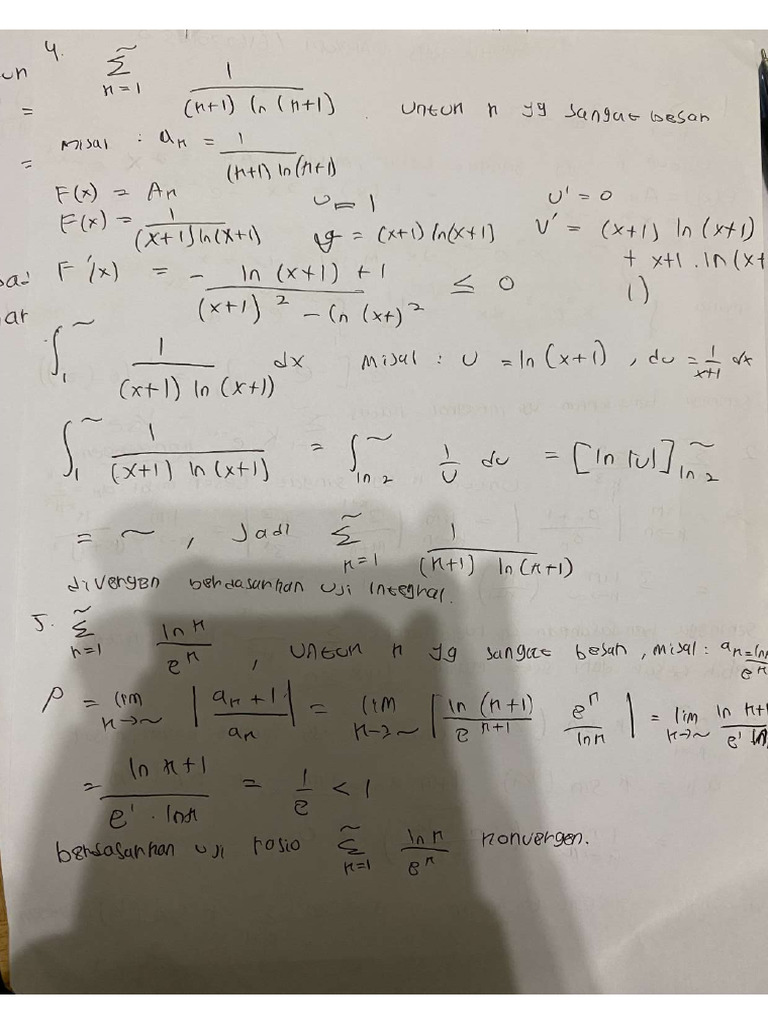 4. ∑_{n=1}^{~} 1/((n+1) ln (n+1)) . untuk n yg sangat besar
un
=
misal : a_n = 1/((n+1) ln(n+1))
=
F(x) = An u = 1 U' = 0
F(x) = 1/((x+1) ln(x+1)) v = (x+1) ln(x+1) V' = (x+1) ln (x+1) + x+1 . ln (x+1)
ad F'(x) = - (ln (x+1) + 1)/((x+1)^2 - (ln (x+)^2) ≤ 0
ar
∫_1^~ 1/((x+1) ln (x+1)) dx misal : u = ln (x+1) , du = 1/(x+1) dx
∫_1^~ 1/((x+1) ln (x+1)) = ∫_{ln 2}^~ 1/u du = [ln |u|]_{ln 2}^~
= ~ , Jadi ∑_{n=1}^{~} 1/((n+1) ln (n+1))
divergen berdasarkan uji integral.
5. ∑_{n=1}^{~} ln n/e^n , untuk n yg sangat besar , misal : a_n = ln/e^n
ρ = lim_{n→~} |a_n+1/a_n| = lim_{n→~} |ln (n+1)/e^{n+1} e^n/ln n| = lim_{n→~} ln n+1/e^1 ln
= ln n+1/(e^1 . ln n) = 1/e < 1
berdasarkan uji rasio ∑_{n=1}^{~} ln n/e^n konvergen.